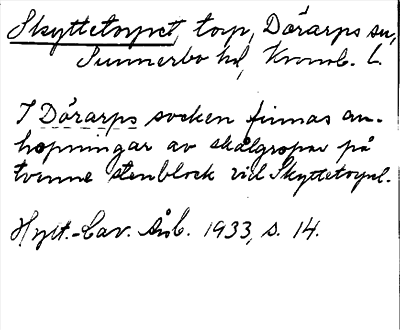 Skyttetorpet, torp, Dörarps sn,
Sunnerbo hd, Kronob. l.
I Dörarps socken finnas an-
hopningar av skålgropar på
tvenne stenblock vid Skyttetorpet.
Hylt.-Cav. Årsb. 1933, s. 14.